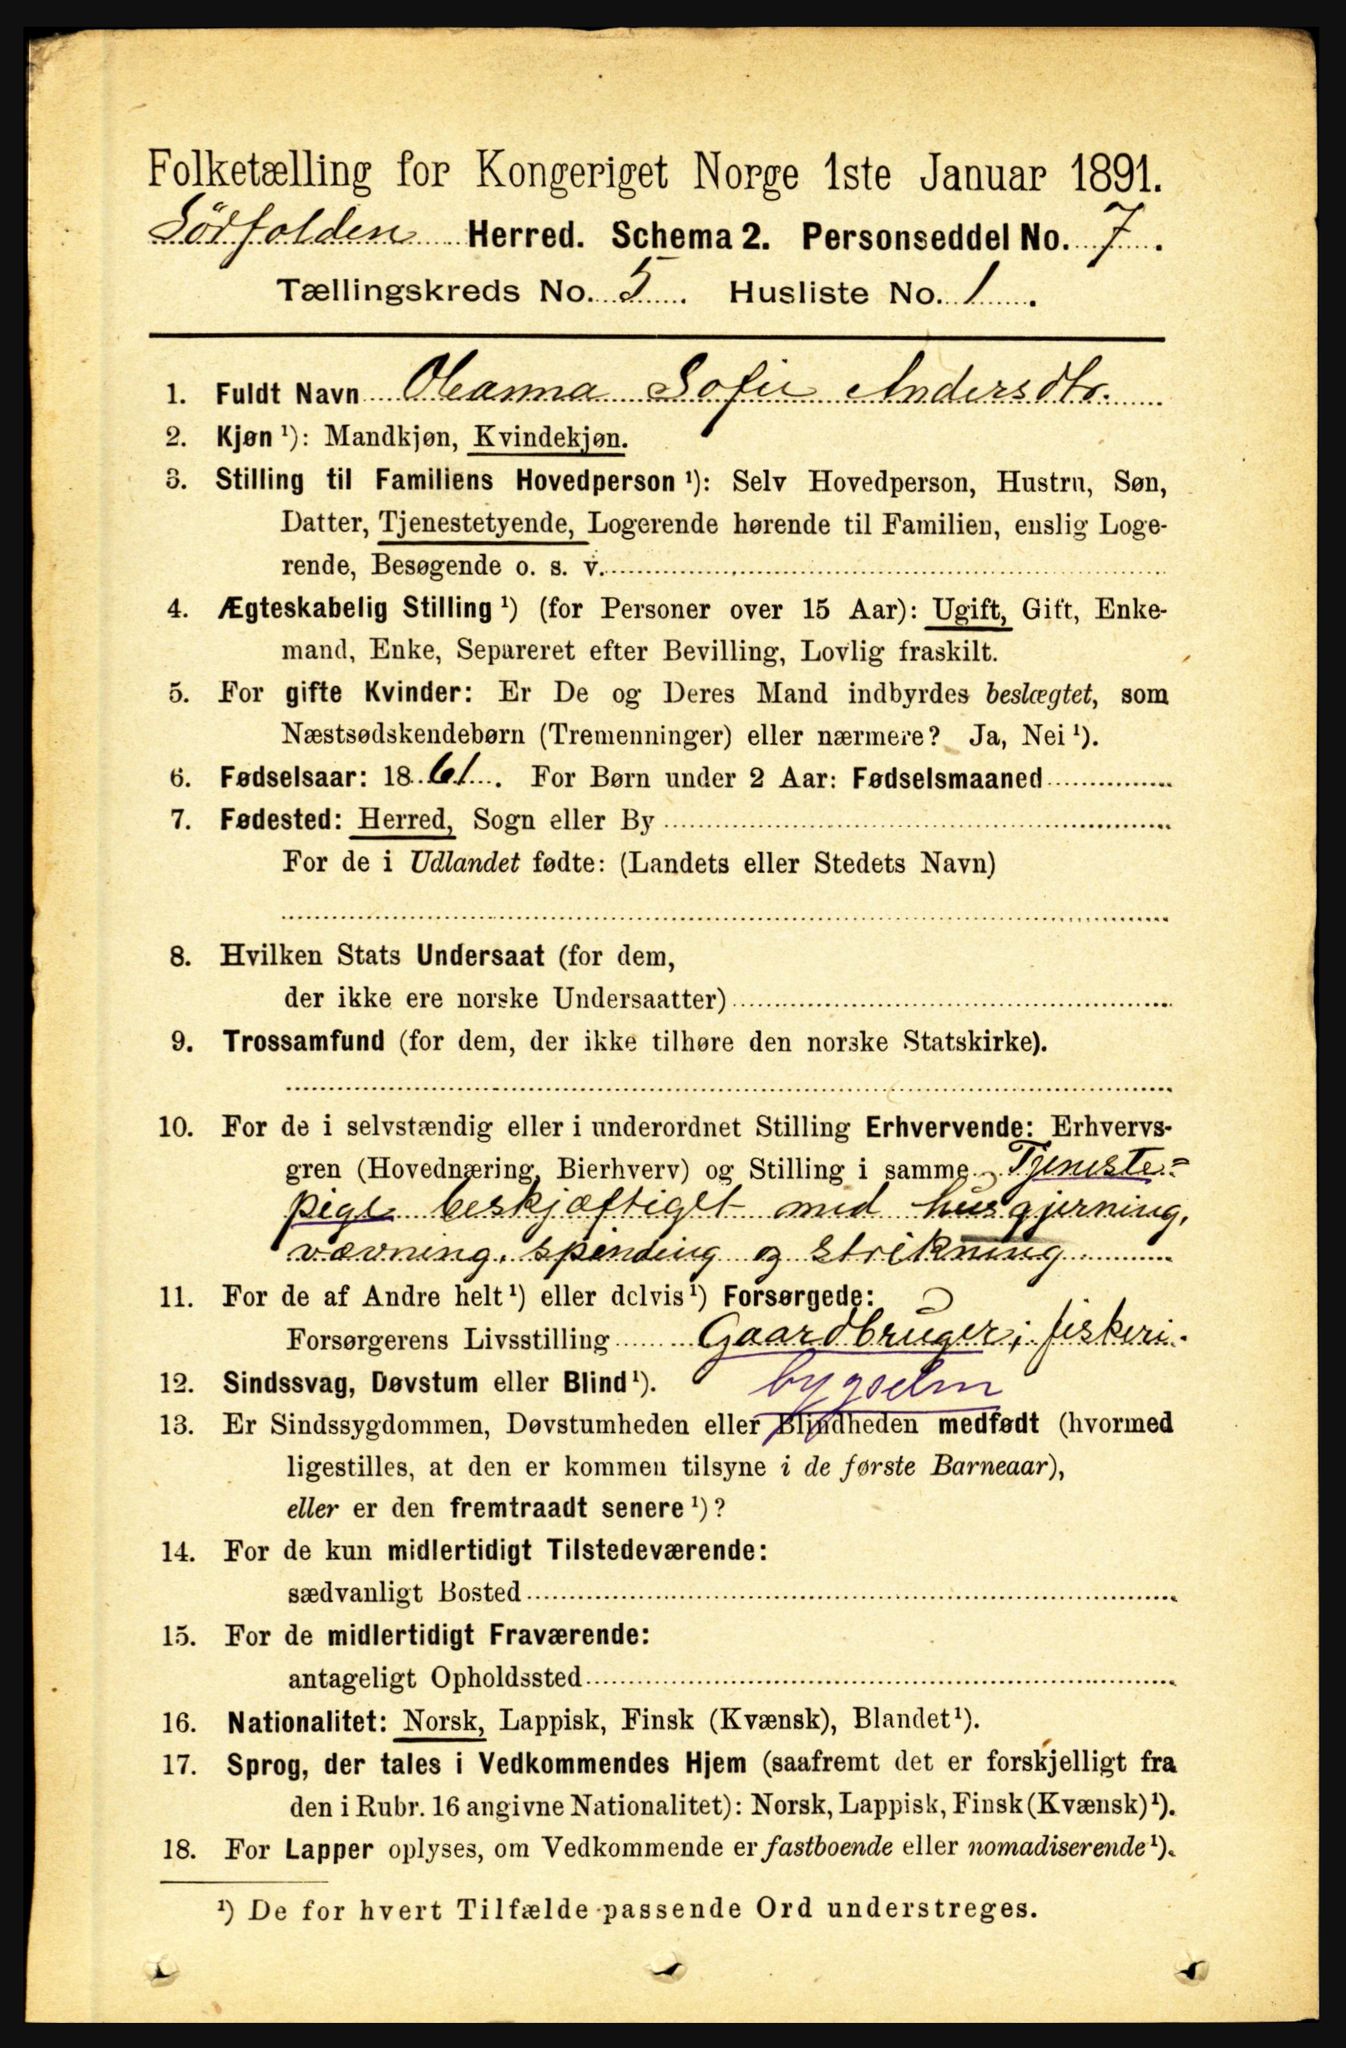 Folketælling for Kongeriget Norge 1ste Januar 1891.
Sörfolden Herred. Schema 2. Personseddel No. 7.
Tællingskreds No. 5. Husliste No. 1.
1. Fuldt Navn Oleanna Sofie Andersdtr.
2. Kjøn ¹): Mandkjøn, Kvindekjøn.
3. Stilling til Familiens Hovedperson ¹): Selv Hovedperson, Hustru, Søn,
Datter, Tjenestetyende, Logerende hørende til Familien, enslig Loge-
rende, Besøgende o. s. v.
4. Ægteskabelig Stilling ¹) (for Personer over 15 Aar): Ugift, Gift, Enke-
mand, Enke, Separeret efter Bevilling, Lovlig fraskilt.
5. For gifte Kvinder: Er De og Deres Mand indbyrdes beslægtet, som
Næstsødskendebørn (Tremenninger) eller nærmere? Ja, Nei ¹).
6. Fødselsaar: 1861. For Børn under 2 Aar: Fødselsmaaned
7. Fødested: Herred, Sogn eller By
For de i Udlandet fødte: (Landets eller Stedets Navn)
8. Hvilken Stats Undersaat (for dem,
der ikke ere norske Undersaatter)
9. Trossamfund (for dem, der ikke tilhøre den norske Statskirke).
10. For de i selvstændig eller i underordnet Stilling Erhvervende: Erhvervs-
gren (Hovednæring, Bierhverv) og Stilling i samme Tjeneste=
pige beskjæftiget med husgjerning,
vævning, spinding og strikning
11. For de af Andre helt ¹) eller delvis ¹) Forsørgede:
Forsørgerens Livsstilling Gaardbruger; fiskeri.
12. Sindssvag, Døvstum eller Blind ¹). bygselm
13. Er Sindssygdommen, Døvstumheden eller Blindheden medfødt (hvormed
ligestilles, at den er kommen tilsyne i de første Barneaar),
eller er den fremtraadt senere ¹)?
14. For de kun midlertidigt Tilstedeværende:
sædvanligt Bosted
15. For de midlertidigt Fraværende:
antageligt Opholdssted
16. Nationalitet: Norsk, Lappisk, Finsk (Kvænsk), Blandet ¹).
17. Sprog, der tales i Vedkommendes Hjem (saafremt det er forskjelligt fra
den i Rubr. 16 angivne Nationalitet): Norsk, Lappisk, Finsk (Kvænsk) ¹).
18. For Lapper oplyses, om Vedkommende er fastboende eller nomadiserende ¹).
¹) De for hvert Tilfælde passende Ord understreges.